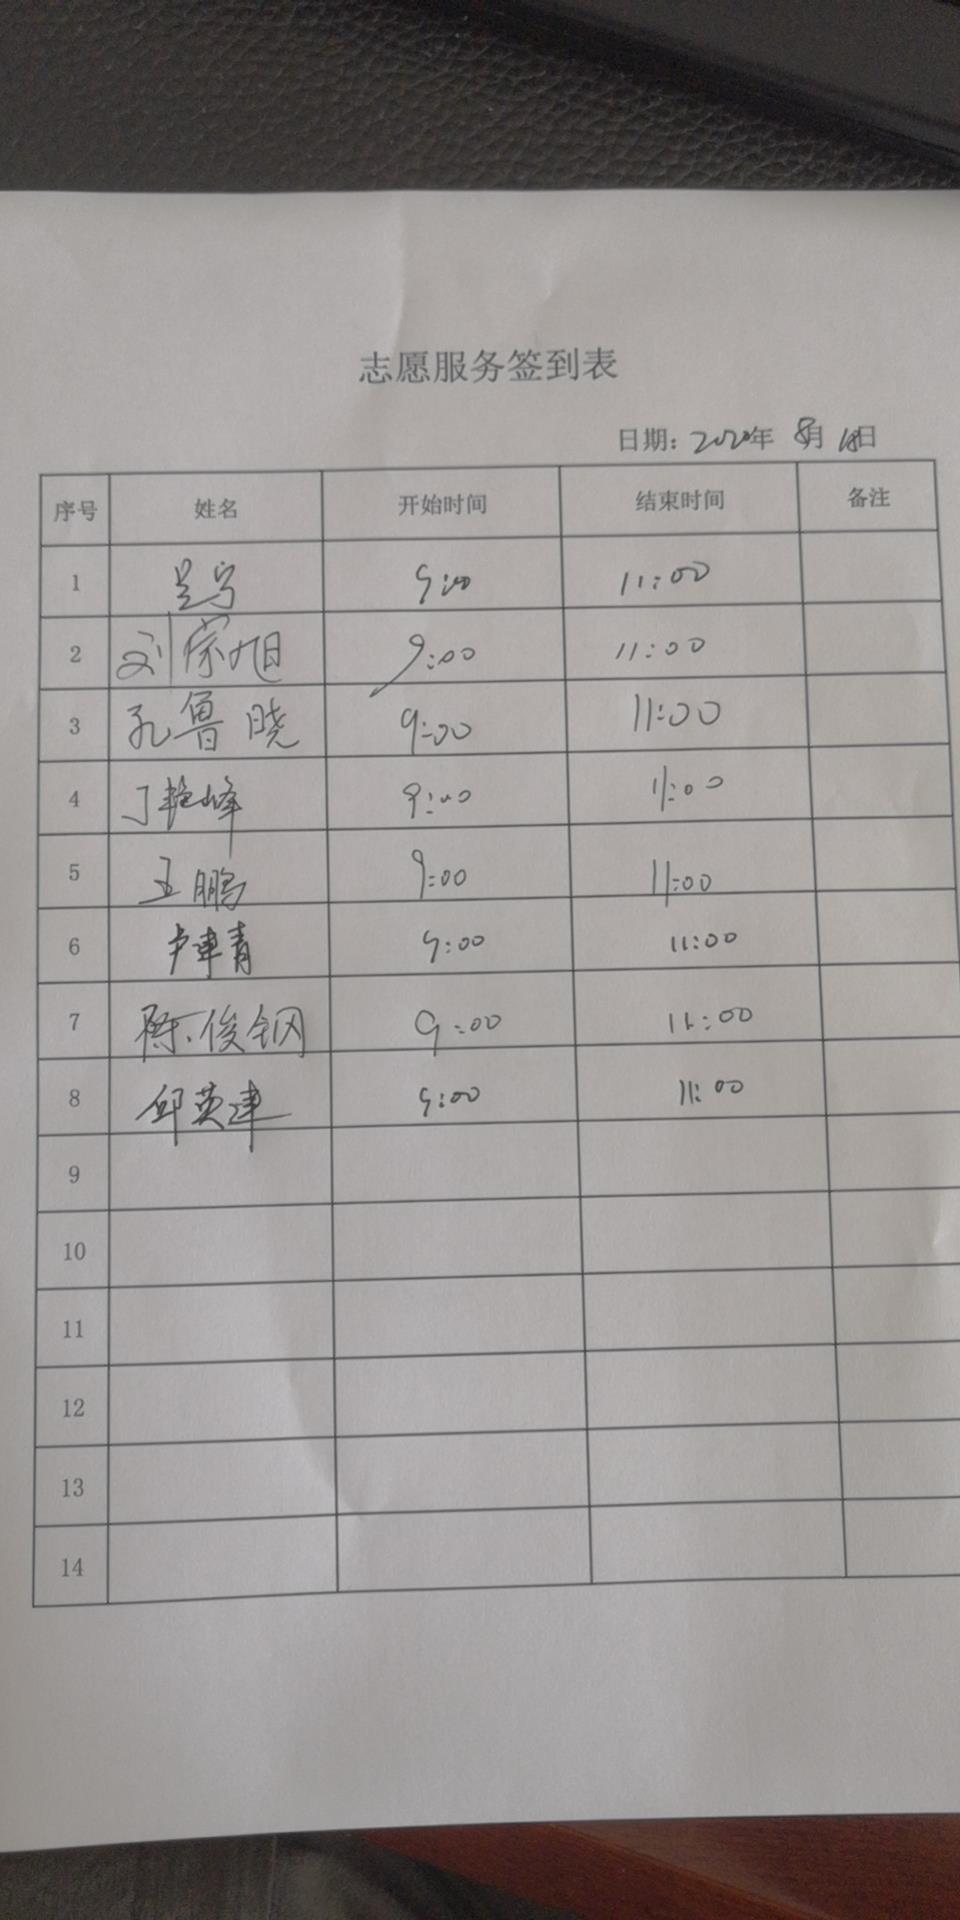 志愿服务签到表
日期: 2020年 8月 18日
序号 姓名 开始时间 结束时间 备注
1 9:00 11:00
2 刘宗旭 9:00 11:00
3 孔鲁晓 9:00 11:00
4 丁艳峰 9:00 11:00
5 王鹏 9:00 11:00
6 卢建青 9:00 11:00
7 陈俊钢 9:00 11:00
8 邱英建 9:00 11:00
9
10
11
12
13
14